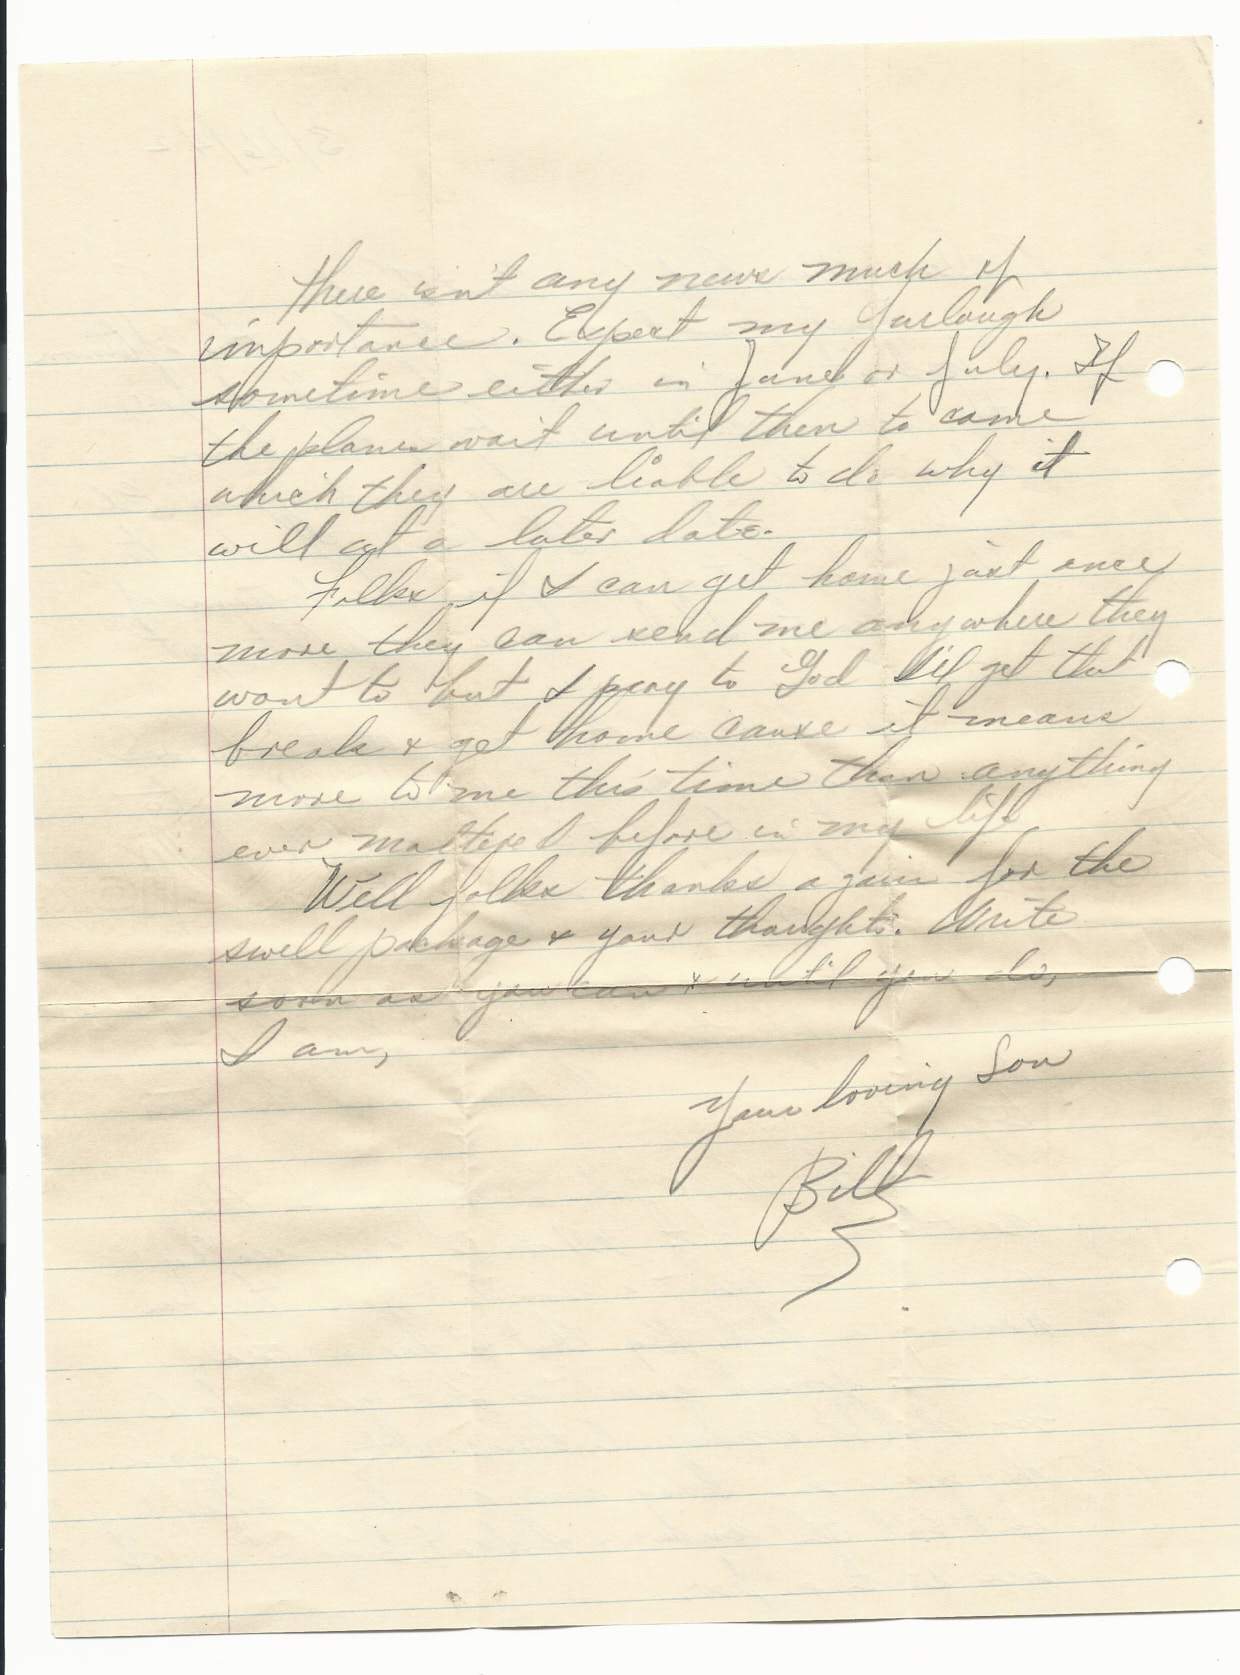 There isn't any news much of
importance. Expect my furlough
sometime either in June or July. If
the planes wait until then to come
which they are liable to do why it
will at a later date.
Folks, if I can get home just once
more they can send me anywhere they
want to but I pray to God I'll get that
break & get home cause it means
more to me this time than anything
ever mattered before in my life
Well folks thanks again for the
swell package & your thoughts. Write
soon as you can & until you do,
I am,
Your loving Son
Bill